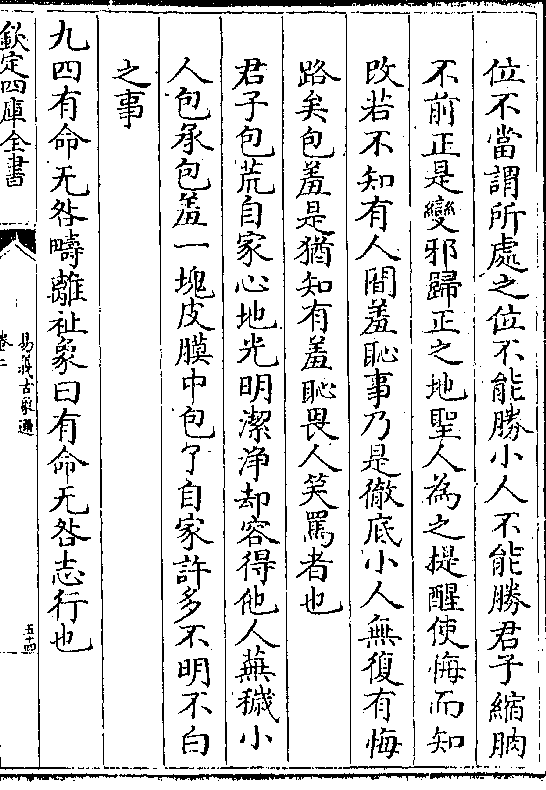 位不當謂所處之位不能勝小人不能勝君子縮朒
不前正是變邪歸正之地聖人為之提醒使悔而知
改若不知有人間羞恥事乃是徹底小人無復有悔
路矣包羞是猶知有羞恥畏人笑罵者也
君子包荒自家心地光明潔淨却容得他人蕪穢小
人包承包羞一塊皮膜中包了自家許多不明不白
之事
九四有命无咎疇離祉象曰有命无咎志行也
欽定四庫全書
易義古象通
卷二
五十四